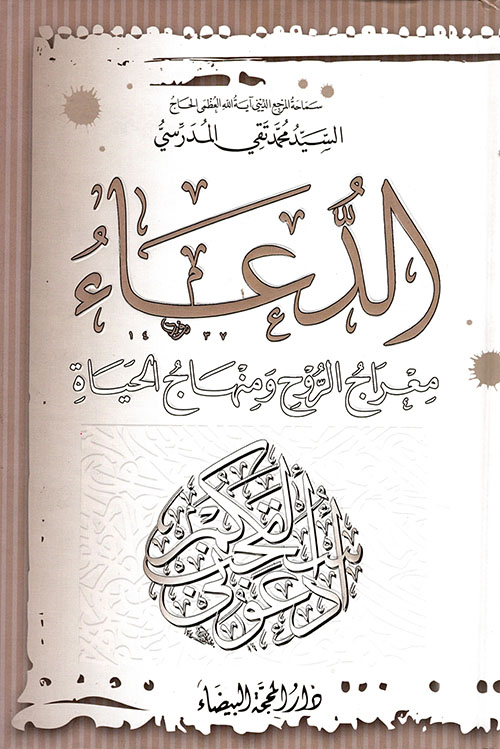 سَمَاحَة المَرجِع الدِّيني آيَة الله العُظمَى الحَاج
السَّيِّدُ مُحَمَّد تَقِي المُدَرِّسِيُّ
الدُّعَاءُ
١٤٣٧
مِعْرَاجُ الرُّوْحِ وَمِنْهَاجُ الحَيَاةِ
ادْعُونِي أَسْتَجِبْ لَكُمْ
دَارُ المَحَجَّة البَيضَاء